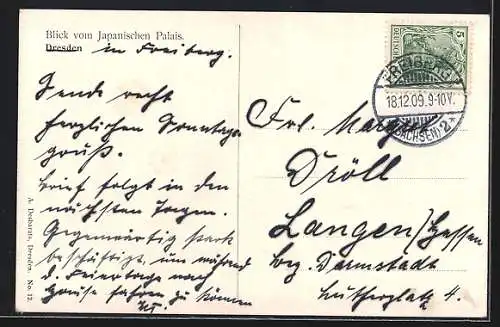 Blick vom Japanischen Palais.
Dresden in Freiberg.
Sende recht
herzlichen Sonntags-
gruß.
Brief folgt in den
nächsten Tagen.
Gegenwärtig stark
beschäftigt, um während
d. Feiertage nach
Hause fahren zu können
A. Desbarats, Dresden. No. 12.
5
DEUTSCHES
FREIBERG
18.12.09. 9-10V.
(SACHSEN) *2*
Frl. Marg.
Dröll
Langen/Hessen
bez. Darmstadt
Lutherplatz 4.